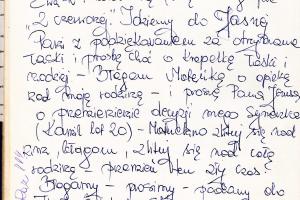 "z czernozej" Idziemy do Jasnej
Pani z podziękowaniem za otrzymane
łaski i prośbą choć o kropelkę łaski i
nadziei - Błagam Mateńkę o opiekę
nad moją rodziną - i proszę Pana Jezusa
o przemienienie decyzji mego Synusia
(Kamil lat 20) - Matuchno zlituj się nad
nim, błagam, zlituj się nad całą
rodziną - przemień ten zły czas
Błagamy - prosimy - padamy do